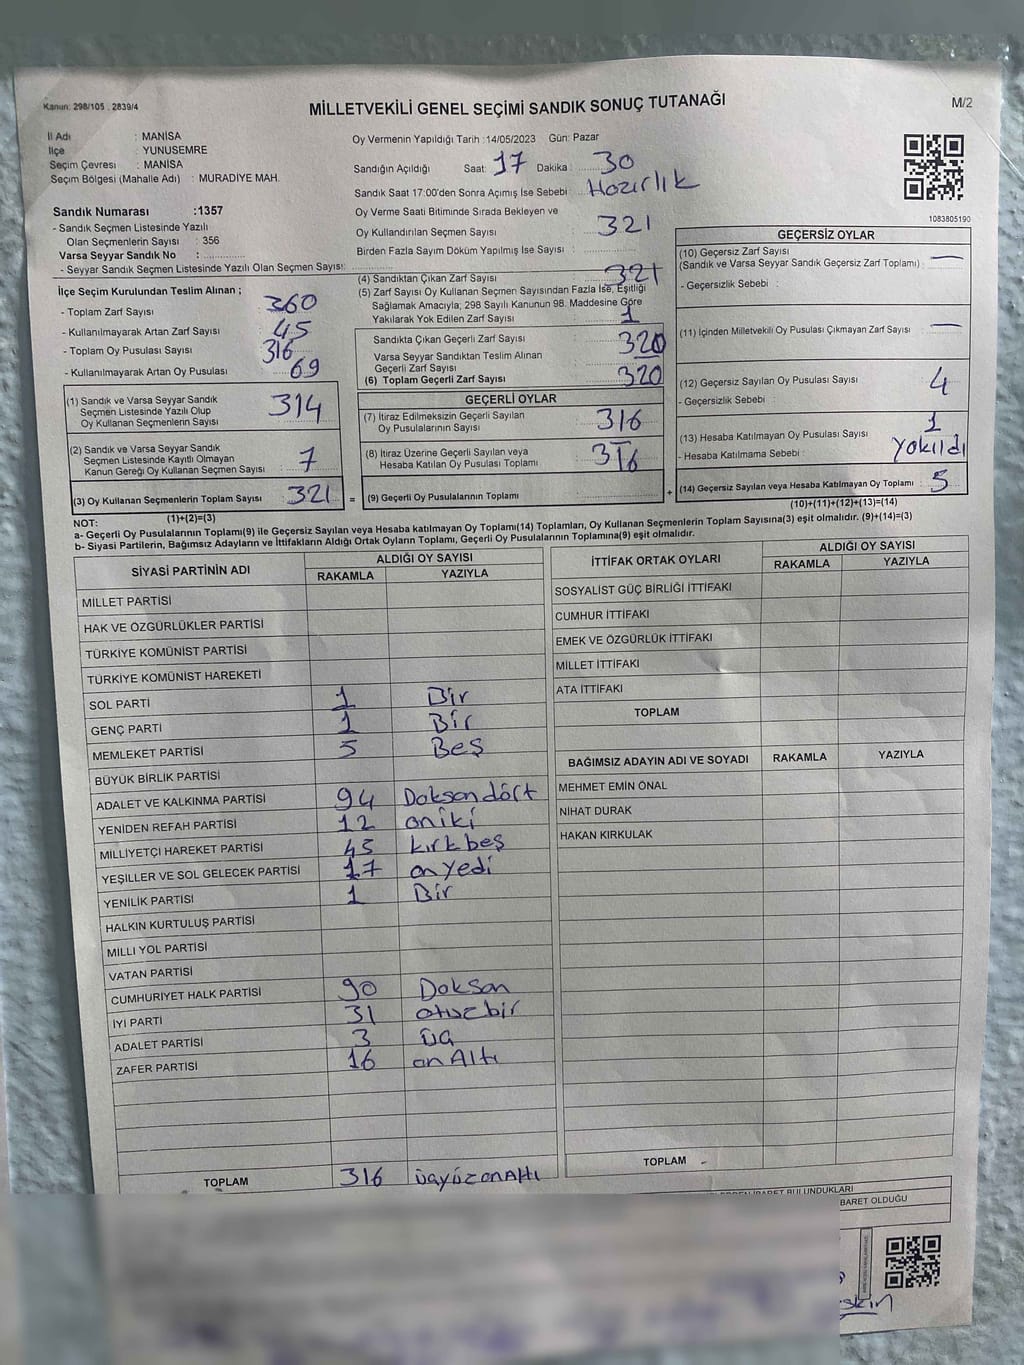 Kanun: 298/105 . 2839/4
MİLLETVEKİLİ GENEL SEÇİMİ SANDIK SONUÇ TUTANAĞI
M/2
İl Adı : MANİSA
İlçe : YUNUSEMRE
Seçim Çevresi : MANİSA
Seçim Bölgesi (Mahalle Adı) : MURADİYE MAH.
Sandık Numarası :1357
- Sandık Seçmen Listesinde Yazılı
Olan Seçmenlerin Sayısı : 356
Varsa Seyyar Sandık No :
- Seyyar Sandık Seçmen Listesinde Yazılı Olan Seçmen Sayısı:
İlçe Seçim Kurulundan Teslim Alınan ;
- Toplam Zarf Sayısı 360
- Kullanılmayarak Artan Zarf Sayısı 45
- Toplam Oy Pusulası Sayısı 316
- Kullanılmayarak Artan Oy Pusulası 69
(1) Sandık ve Varsa Seyyar Sandık
Seçmen Listesinde Yazılı Olup
Oy Kullanan Seçmenlerin Sayısı 314
(2) Sandık ve Varsa Seyyar Sandık
Seçmen Listesinde Kayıtlı Olmayan
Kanun Gereği Oy Kullanan Seçmen Sayısı 7
(3) Oy Kullanan Seçmenlerin Toplam Sayısı 321 =
(1)+(2)=(3)
Oy Vermenin Yapıldığı Tarih :14/05/2023 Gün: Pazar
Sandığın Açıldığı Saat: 17 Dakika : 30
Sandık Saat 17:00'den Sonra Açımış İse Sebebi : Hazırlık
Oy Verme Saati Bitiminde Sırada Bekleyen ve
Oy Kullandırılan Seçmen Sayısı : 321
Birden Fazla Sayım Döküm Yapılmış İse Sayısı :
(4) Sandıktan Çıkan Zarf Sayısı 321
(5) Zarf Sayısı Oy Kullanan Seçmen Sayısından Fazla İse, Eşitliği
Sağlamak Amacıyla; 298 Sayılı Kanunun 98. Maddesine Göre
Yakılarak Yok Edilen Zarf Sayısı : 1
Sandıkta Çıkan Geçerli Zarf Sayısı 320
Varsa Seyyar Sandıktan Teslim Alınan
Geçerli Zarf Sayısı
(6) Toplam Geçerli Zarf Sayısı 320
GEÇERLİ OYLAR
(7) İtiraz Edilmeksizin Geçerli Sayılan
Oy Pusulalarının Sayısı 316
(8) İtiraz Üzerine Geçerli Sayılan veya
Hesaba Katılan Oy Pusulası Toplamı 316
(9) Geçerli Oy Pusulalarının Toplamı +
1083805190
GEÇERSİZ OYLAR
(10) Geçersiz Zarf Sayısı
(Sandık ve Varsa Seyyar Sandık Geçersiz Zarf Toplamı) : —
- Geçersizlik Sebebi :
(11) İçinden Milletvekili Oy Pusulası Çıkmayan Zarf Sayısı : —
(12) Geçersiz Sayılan Oy Pusulası Sayısı : 4
- Geçersizlik Sebebi :
(13) Hesaba Katılmayan Oy Pusulası Sayısı : 1
- Hesaba Katılmama Sebebi : Yakıldı
(14) Geçersiz Sayılan veya Hesaba Katılmayan Oy Toplamı : 5
(10)+(11)+(12)+(13)=(14)
NOT:
a- Geçerli Oy Pusulalarının Toplamı(9) ile Geçersiz Sayılan veya Hesaba katılmayan Oy Toplamı(14) Toplamları, Oy Kullanan Seçmenlerin Toplam Sayısına(3) eşit olmalıdır. (9)+(14)=(3)
b- Siyasi Partilerin, Bağımsız Adayların ve İttifakların Aldığı Ortak Oyların Toplamı, Geçerli Oy Pusulalarının Toplamına(9) eşit olmalıdır.
SİYASİ PARTİNİN ADI ALDIĞI OY SAYISI
RAKAMLA YAZIYLA
MİLLET PARTİSİ
HAK VE ÖZGÜRLÜKLER PARTİSİ
TÜRKİYE KOMÜNİST PARTİSİ
TÜRKİYE KOMÜNİST HAREKETİ
SOL PARTİ 1 Bir
GENÇ PARTİ 1 Bir
MEMLEKET PARTİSİ 5 Beş
BÜYÜK BİRLİK PARTİSİ
ADALET VE KALKINMA PARTİSİ 94 Doksan dört
YENİDEN REFAH PARTİSİ 12 on iki
MİLLİYETÇİ HAREKET PARTİSİ 45 kırk beş
YEŞİLLER VE SOL GELECEK PARTİSİ 17 on yedi
YENİLİK PARTİSİ 1 Bir
HALKIN KURTULUŞ PARTİSİ
MİLLİ YOL PARTİSİ
VATAN PARTİSİ
CUMHURİYET HALK PARTİSİ 90 Doksan
İYİ PARTİ 31 otuzbir
ADALET PARTİSİ 3 üç
ZAFER PARTİSİ 16 on Altı
TOPLAM 316 üçyüzonAltı
İTTİFAK ORTAK OYLARI ALDIĞI OY SAYISI
RAKAMLA YAZIYLA
SOSYALİST GÜÇ BİRLİĞİ İTTİFAKI
CUMHUR İTTİFAKI
EMEK VE ÖZGÜRLÜK İTTİFAKI
MİLLET İTTİFAKI
ATA İTTİFAKI
TOPLAM
BAĞIMSIZ ADAYIN ADI VE SOYADI RAKAMLA YAZIYLA
MEHMET EMİN ÖNAL
NİHAT DURAK
HAKAN KIRKULAK
TOPLAM
BULUNDUKLARI
BARET OLDUĞU